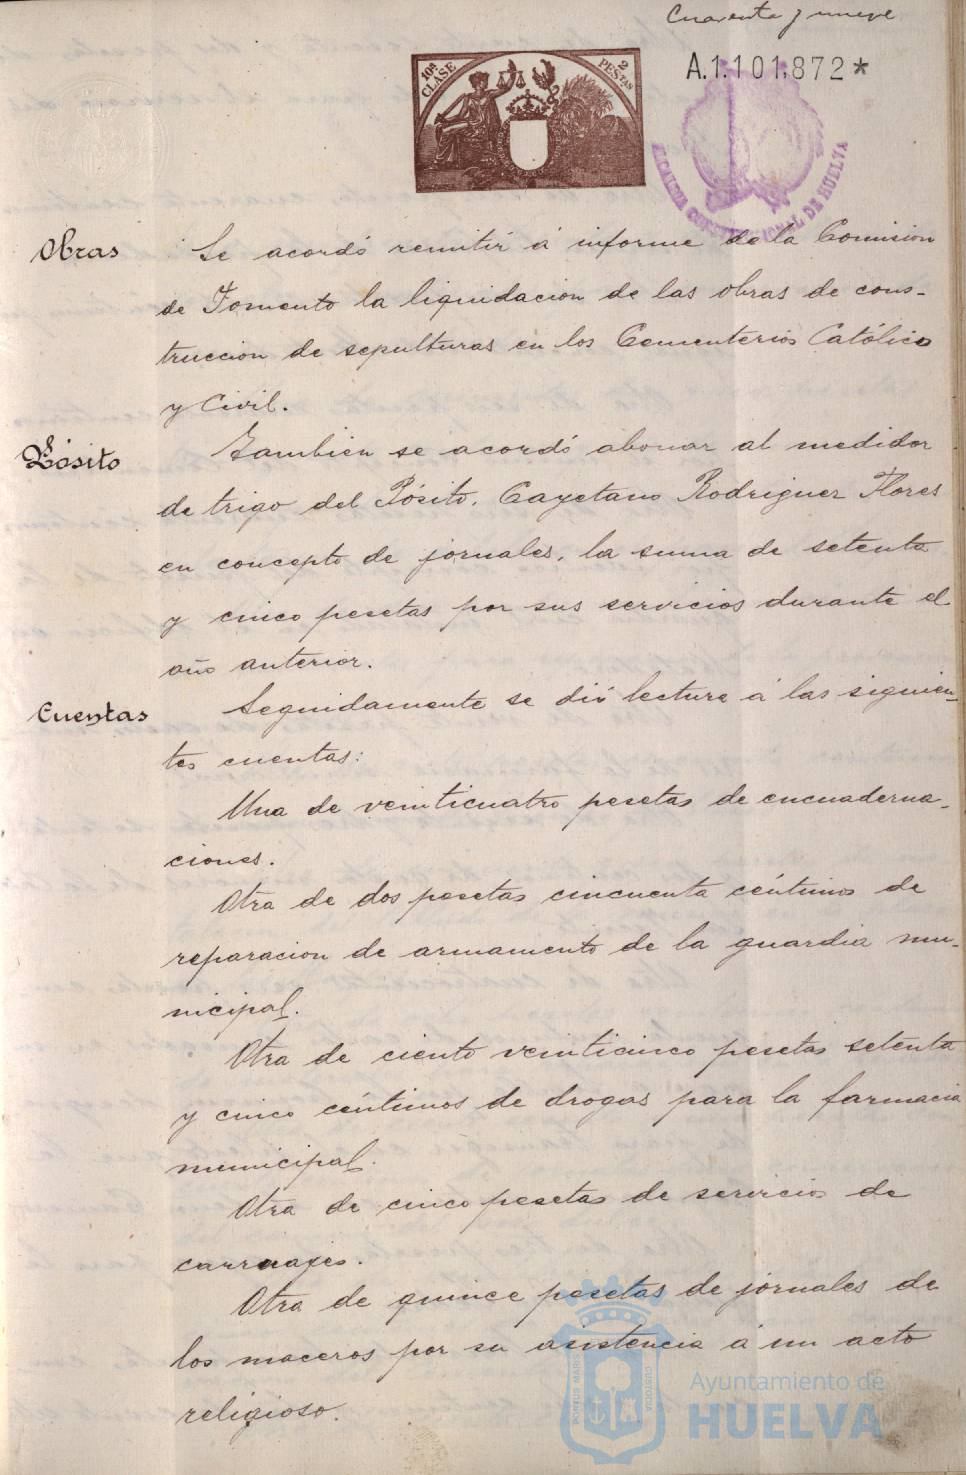 Cuarenta y nueve
10ª CLASE
2 PESETAS
A.1.101,872*
ALCALDIA CONSTITUCIONAL DE HUELVA
Obras
Se acordó remitir á informe de la Comision
de Fomento la liquidacion de las obras de cons-
truccion de sepulturas en los Cementerios Católico
y Civil.
Pósito
Tambien se acordó abonar al medidor
de trigo del Pósito, Cayetano Rodriguez Flores
en concepto de jornales, la suma de setenta
y cinco pesetas por sus servicios durante el
año anterior.
Cuentas
Seguidamente se dió lectura á las siguien-
tes cuentas:
Una de veinticuatro pesetas de encuaderna-
ciones.
Otra de dos pesetas cincuenta céntimos de
reparacion de armamento de la guardia mu-
nicipal.
Otra de ciento veinticinco pesetas setenta
y cinco céntimos de drogas para la farmacia
municipal.
Otra de cinco pesetas de servicio de
carruajes.
Otra de quince pesetas de jornales de
los maceros por su asistencia á un acto
religioso.
PORTUS MARIS
CUSTODIA
Ayuntamiento de
HUELVA